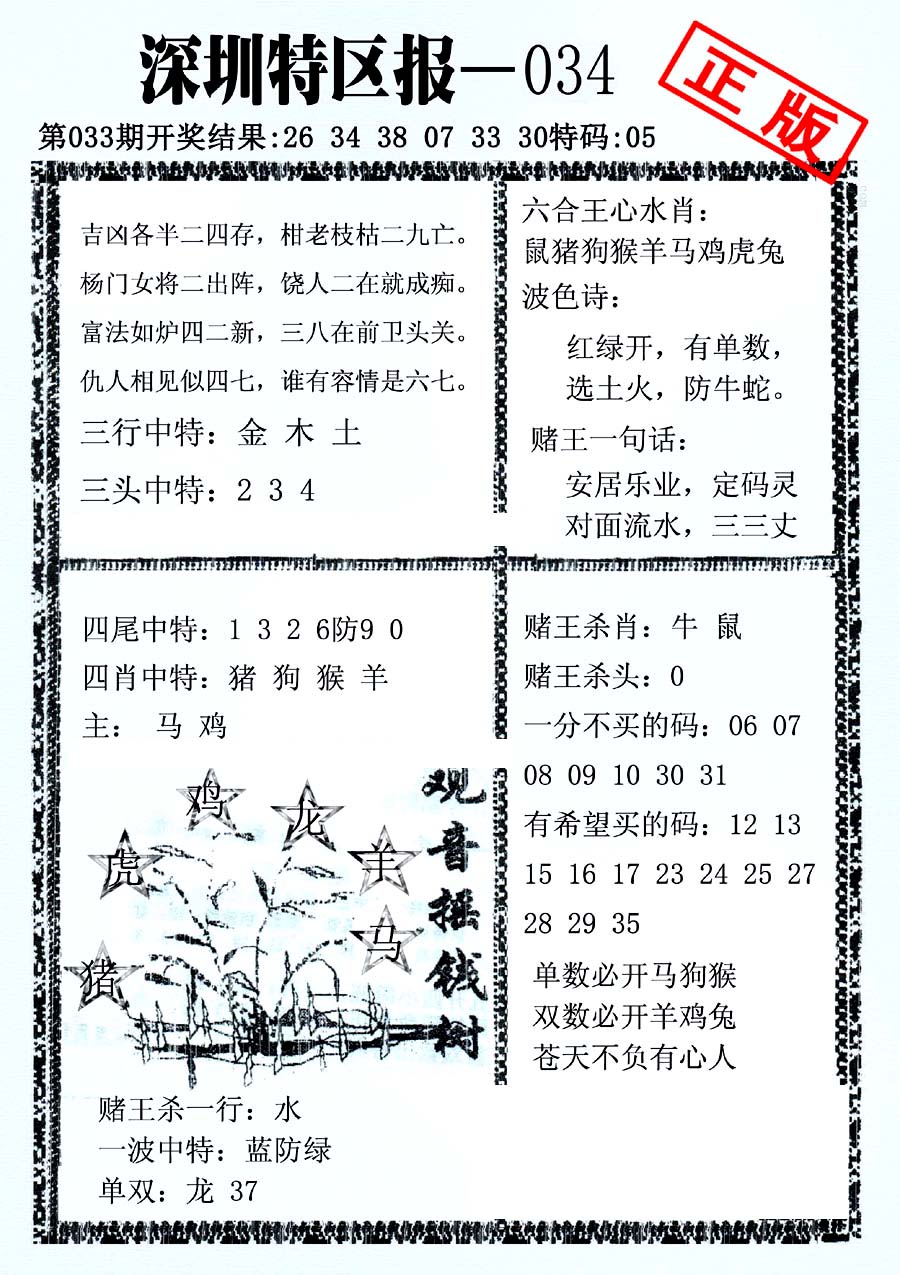 深圳特区报—034
正版
第033期开奖结果:26 34 38 07 33 30特码:05
吉凶各半二四存，柑老枝枯二九亡。
杨门女将二出阵，饶人二在就成痴。
富法如炉四二新，三八在前卫头关。
仇人相见似四七，谁有容情是六七。
三行中特：金 木 土
三头中特：2 3 4
六合王心水肖：
鼠猪狗猴羊马鸡虎兔
波色诗：
红绿开，有单数，
选土火，防牛蛇。
赌王一句话：
安居乐业，定码灵
对面流水，三三丈
四尾中特：1 3 2 6防9 0
四肖中特：猪 狗 猴 羊
主： 马 鸡
鸡
龙
虎
羊
马
猪
观音摇钱树
赌王杀一行：水
一波中特：蓝防绿
单双：龙 37
赌王杀肖：牛 鼠
赌王杀头：0
一分不买的码：06 07
08 09 10 30 31
有希望买的码：12 13
15 16 17 23 24 25 27
28 29 35
单数必开马狗猴
双数必开羊鸡兔
苍天不负有心人